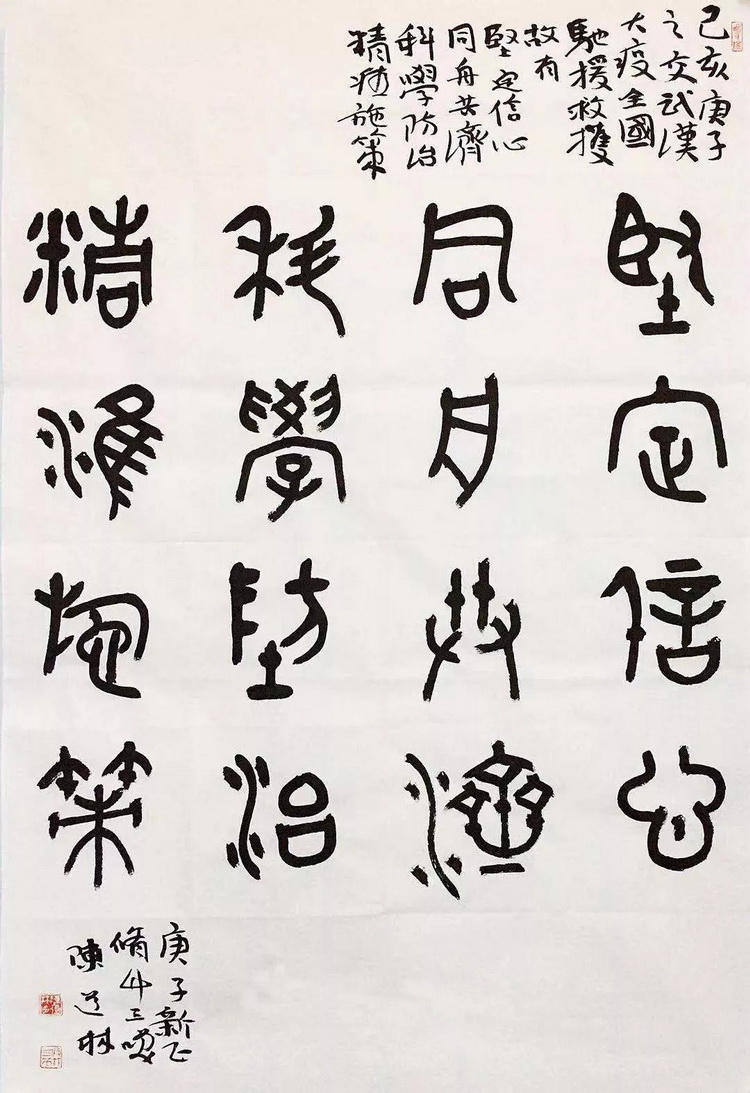 己亥庚子
之交武漢
大疫全國
馳援救獲
故有
堅定信心
同舟共濟
科學防治
精准施策
堅定信心
同舟共濟
科學防治
精準施策
庚子新正
脩竹三
陳道林